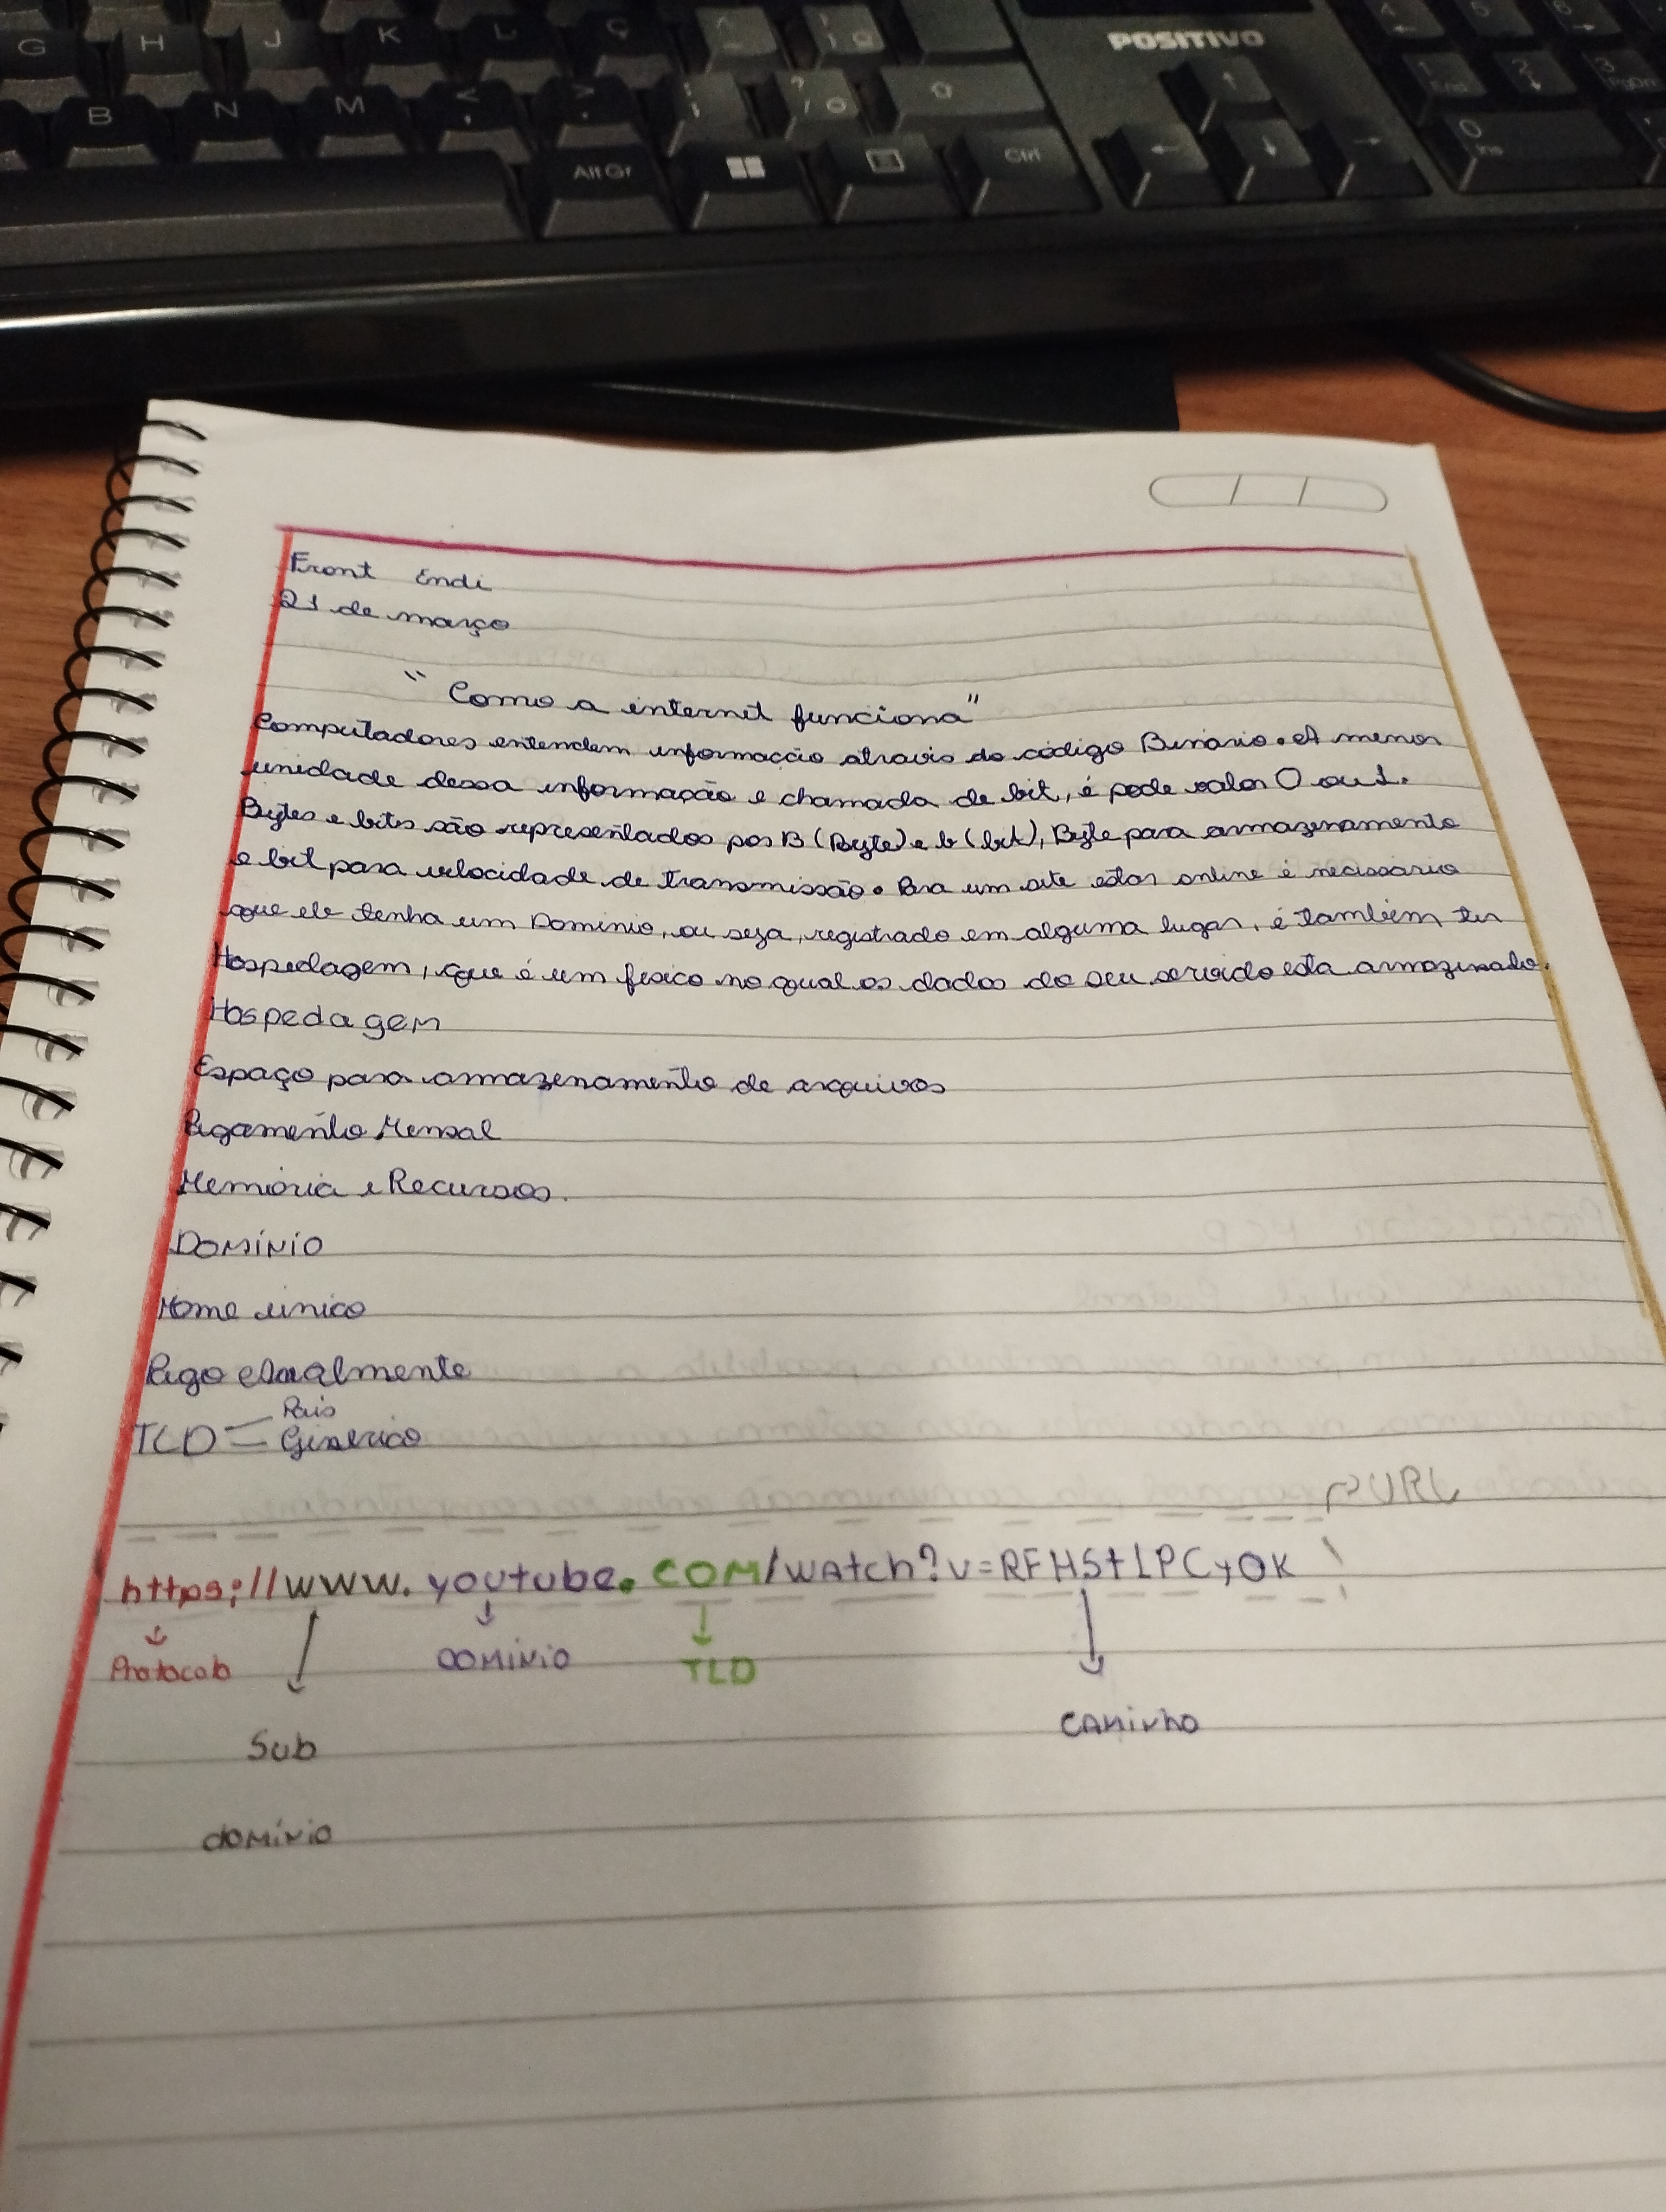 G H J K L Ç ^ ~
POSITIVO
B N M < , > . : ; ? /
Alt Gr Ctrl
4 5 6
1 End 2 3 PgDn
0 Ins
Front Endi
21 de março
"Como a internet funciona"
Computadores entendem informação atravis do código Binário. A menor
unidade dessa informação e chamada de bit, é pode valor 0 ou 1.
Bytes e bites são representados pos B (Byte) e b (bit), Byte para armazenamento
e bit para velocidade de transmissão. Para um site estar online é necissário
que ele tenha um Dominio, ou seja, registrado em alguma lugar, é também ter
Hospedagem, que é um fisico no qual os dados do seu servido esta armazenado.
Hospedagem
Espaço para armazenamento de arquivos
Pagamento Mensal
Memória e Recursos.
Domínio
Nome único
Pago Anualmente
País
TLD = Genérico
URL
https;//www.youtube.COM/watch?v=RFHStLPCyOK
Protocolo DOMÍNIO TLD
CAMINHO
Sub
domínio